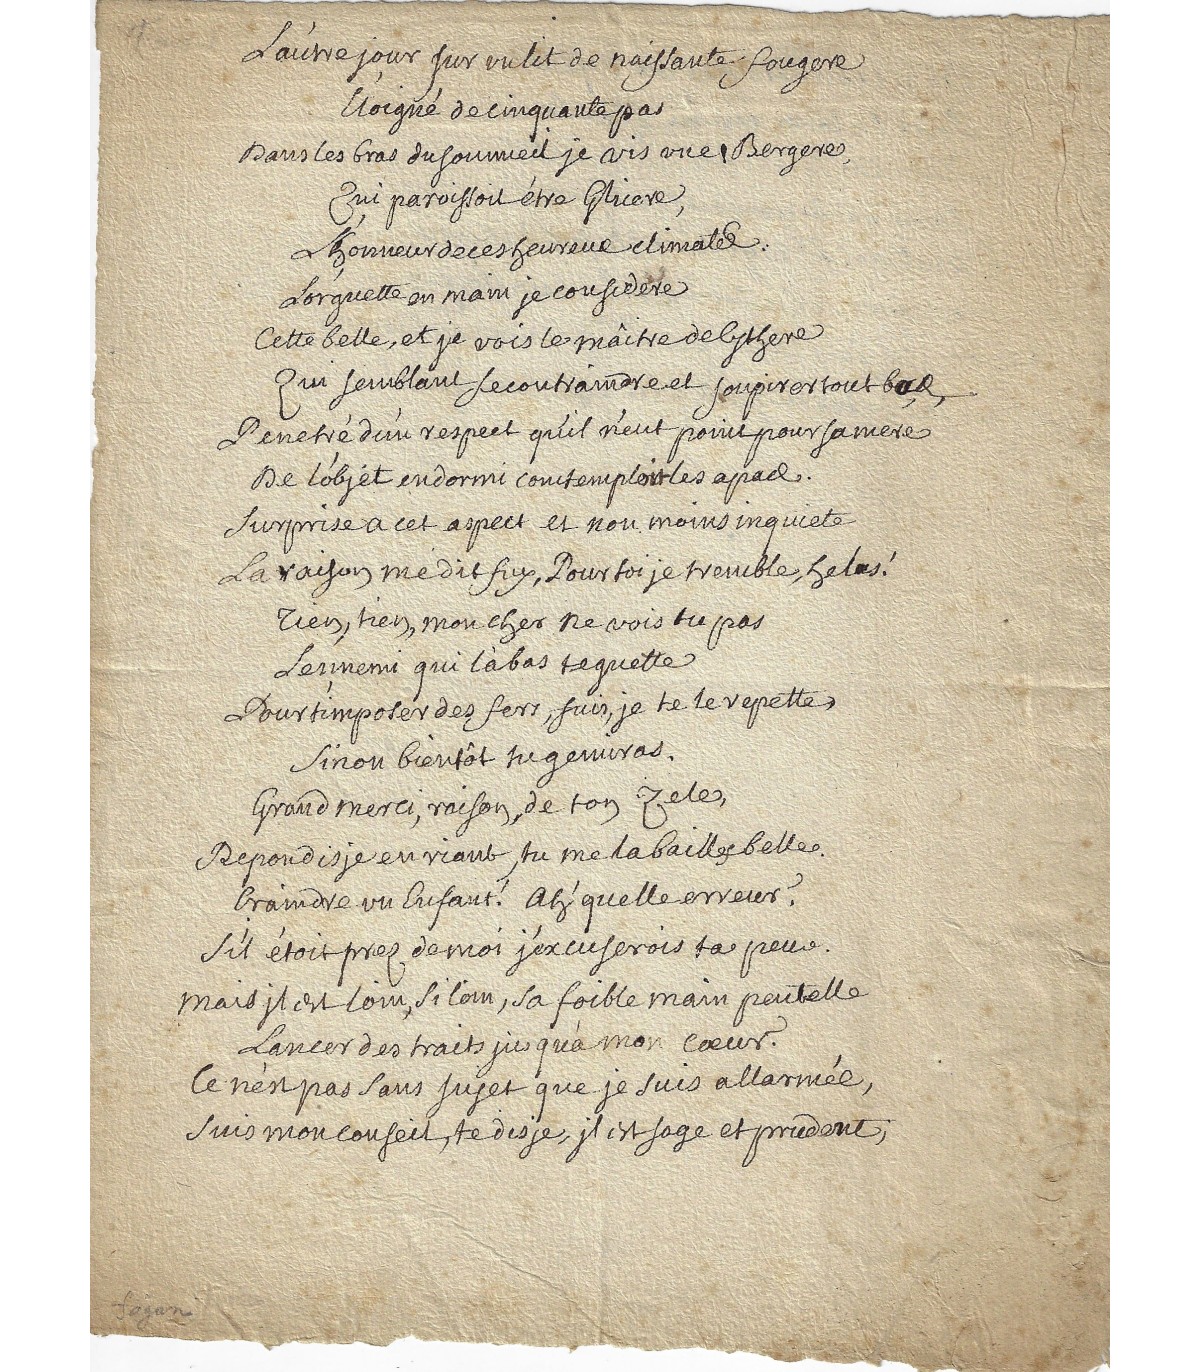 L'autre jour sur un lit de naissante fougere
Eloigné de cinquante pas
Dans les bras du sommeil je vis une Bergere,
Qui paroissoit être Glicere,
L'honneur de ces heureux climats.
Lorguette en main je considere
Cette belle, et je vois le maître de Cythere
Qui semblant se contraindre et soupirer tout bas,
Penetré d'un respect qu'il n'eut point pour sa mere
De l'objet endormi contemploit les apas.
Surprise a cet aspect et non moins inquiete
La raison me dit fuy, Pour toi je tremble, helas!
Tien, tien, mon cher ne vois tu pas
L'ennemi qui là bas te guette
Pour t'imposer des fers, fuis, je te le repette,
Sinon bientôt tu gemiras.
Grand merci, raison, de ton zele,
Repondis je en riant, tu me la bailles belle.
Craindre un Enfant! Ah! quelle erreur?
S'il étoit prez de moi j'excuserois ta peur.
Mais il est loin, si loin, sa foible main peut elle
Lancer des traits jusqu'a mon cœur?
Ce n'est pas sans sujet que je suis allarmée,
Suis mon conseil, te dis je, il est sage et prudent,
fagan